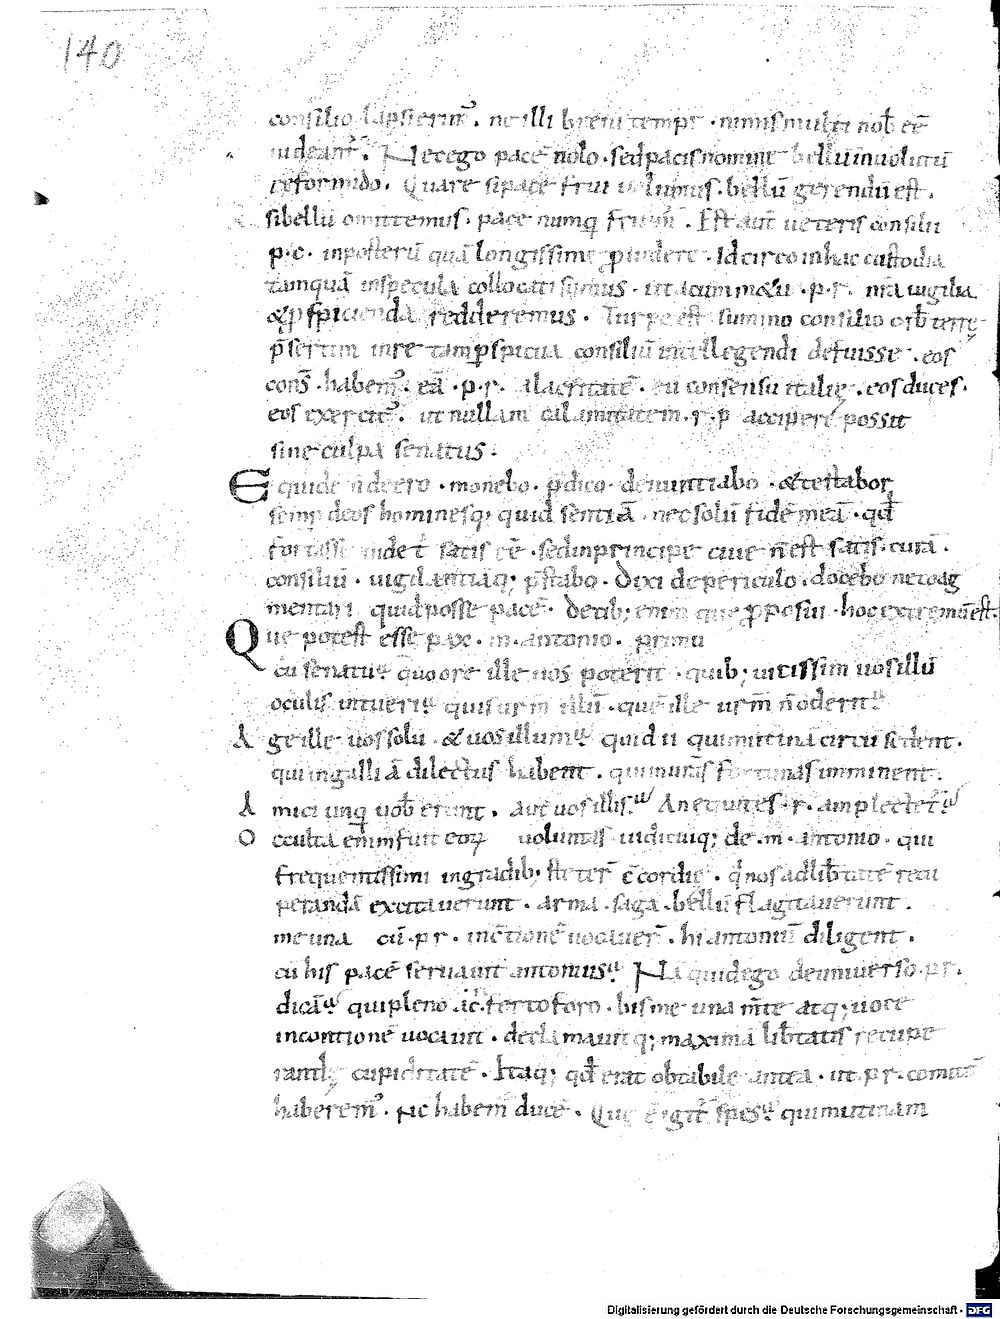 140
consilio lapsi erim̃. ne illi brevi tempr̄ · nimis multi nob̄ eē
uideant̃. Nec ego pacē nolo · sed pacis nomine bellū inuolutū
reformido. Quare si pace frui uolumus. bellū gerendū est.
si bellū omittemus. pace numq̄ fruem̃. Est aut̄ ueteris consilii
p.c. in posterū quā longissime ꝓuidere. Idcirco in hac custodia
tamquā in specula collocati sumus. uti acū metu .p.r. nr̄a uigilia
& ꝓspicienda redderemus. Turpe est summo consilio orb̄ terrę
p̄sertim in re tam ꝑspicua consiliū intellegendi defuisse. eos
cons̄. habem̃. eā .p.r. alacritatē. eū consensū italię. eos duces.
eos exercit̃. ut nullam calamitatem .r.p accipere possit
sine culpa senatus.
Equidē n̄ deero. monebo. p̄dico. denuntiabo. & testabor
semp deos hominesq; quid sentiā. nec solū fidē meā. qđ
fortasse uidet̄ satis eē. sed in principe ciue n̄ est satis. curā.
consiliū. uigilantiaq; p̄stabo. Dixi de periculo. docebo ne coag
mentari quid posse pacē. De trib; enim que ꝓposui. hoc extremū est.
Que potest esse pax .m. antonio. primū
cū senatuᵠ quo ore ille nos poterit. quib; uicissim uos illū
oculis intueriᵠ quis urm̄ illū. quē ille urm̄ n̄ oderit
Age ille uos solū. & uos illum quid ii qui mutinā circū sedent.
qui in galliā dilectus habent. qui in uras fortunas imminent.
Amici unq̄ uob̄ erunt. aut uos illis An equites .r. amplectet̃
Occulta enim fuit eoꝝ uoluntas iudiciūq; de .m. antonio. qui
frequentissimi in gradib; steter̄ c̄cordię. q̄ nos ad lib̄tatē recu
perandā excitauerunt. arma. saga. bellū flagitauerunt.
me una cū .p.r. in c̄tionē uocauer̄. hi antoniū diligent.
cū his pacē seruauit antonius Nā quid ego de uniuerso .p.r.
dicā qui pleno ac. ferto foro. bis me una m̄te atq; uoce
in contionē uocauit. declarauitq; maximā lib̄tatis recupe
randę cupiditatē. Itaq; qđ erat obtabile antea. ut .p.r. comitē
haberem̃. nc habem̃ ducē. Que ē igit̃ spes qui mutinam
Digitalisierung gefördert durch die Deutsche Forschungsgemeinschaft - DFG